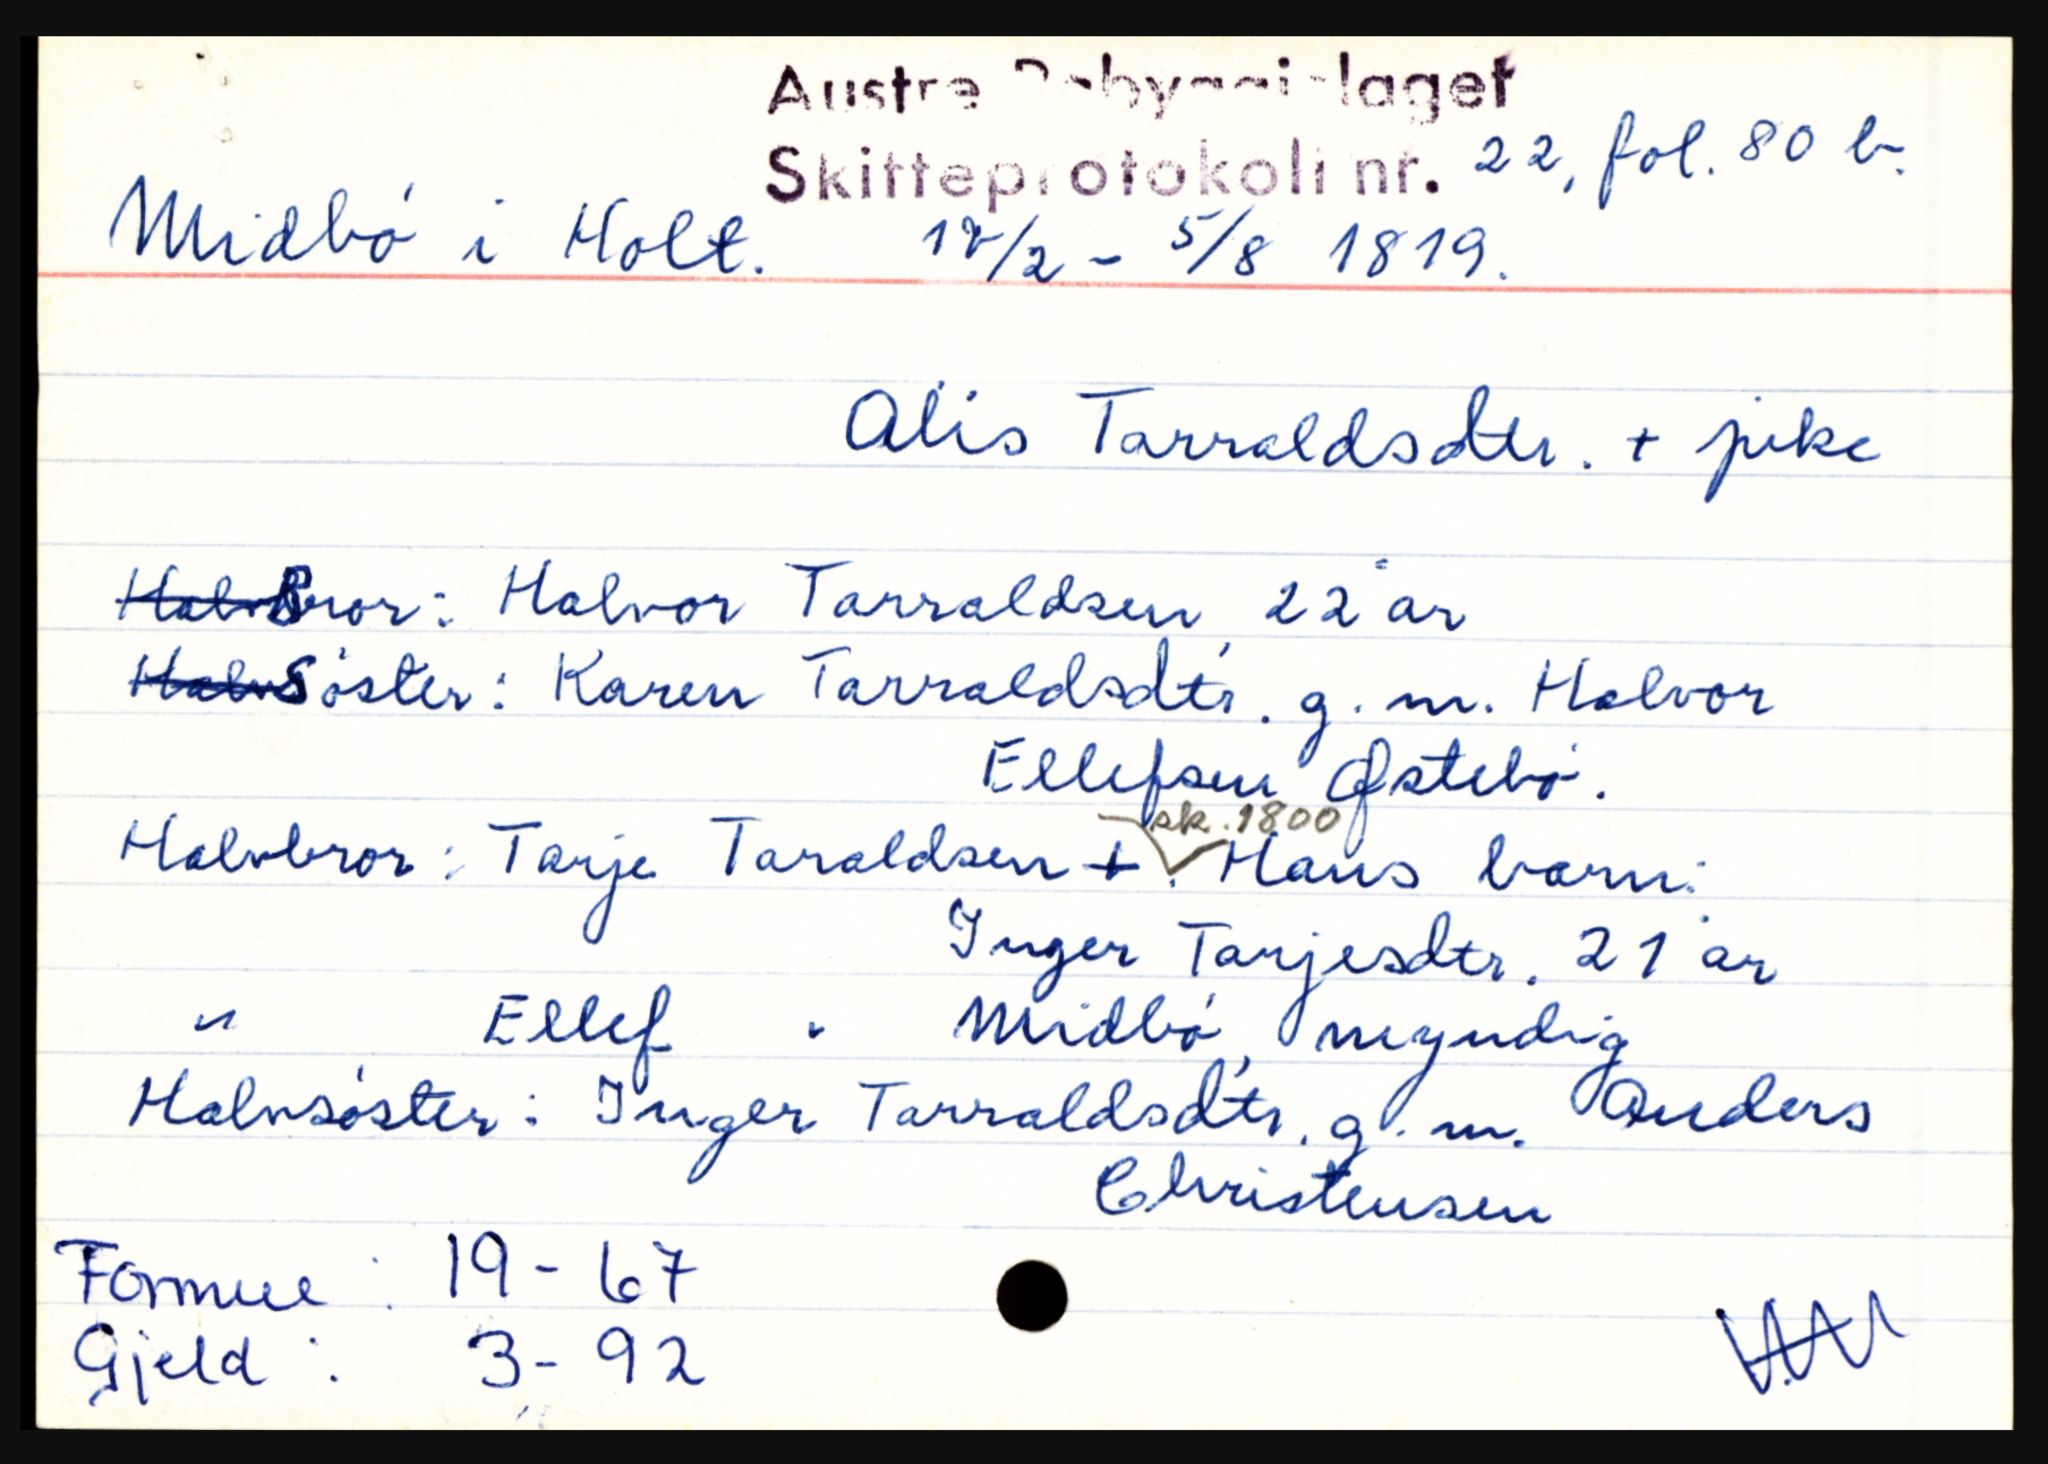 Austre Nebyggjelaget
Skifteprotokoll nr. 22, fol. 80 b.
Midbö i Holt. 18/2 - 5/8 1819.
Alis Tarraldsdtr. + pike
Halv Bror: Halvor Tarraldsen 22 år
Halv Söster: Karen Tarraldsdtr. g. m. Halvor
Ellefsen Østebö.
sk. 1800
Halvbror: Tarje Taraldsen +. Hans barn:
Inger Tarjesdtr. 21 år
" Ellef " Midbö, myndig
Halvsöster: Inger Tarraldsdtr. g. m. Anders
Christensen
Formue: 19 - 67
Gjeld: 3 - 92